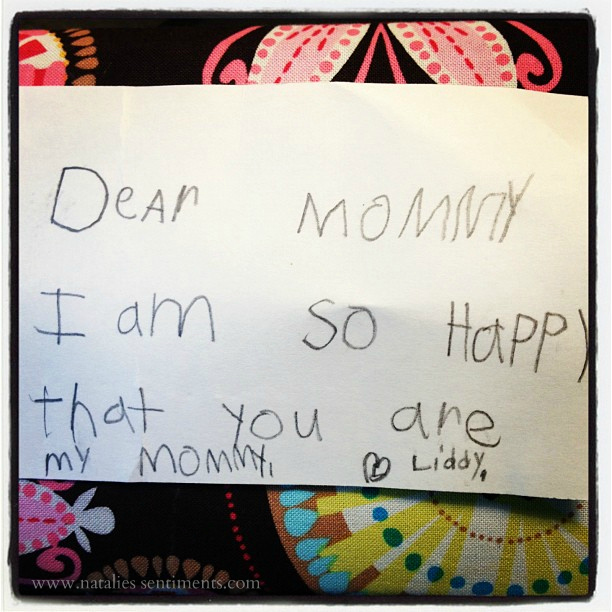 Dear MOMMY
I am so Happy
that you are
my MOMMy.
♡ Liddy.
www.natalies sentiments.com